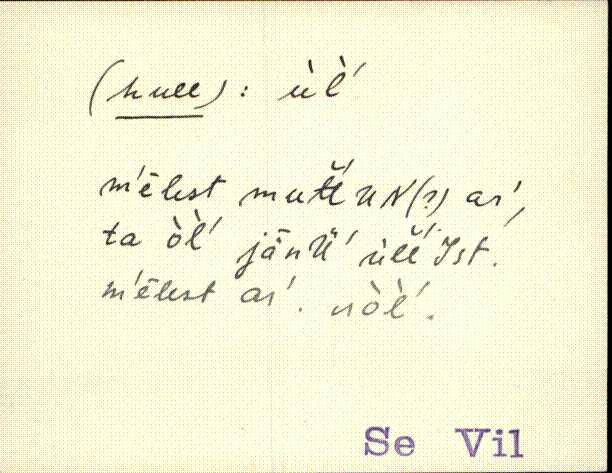 (hull): ùl̀´
m´ēlest mut̆t´UN(?) ar´,
ta òl̀´ jänü´ ùl̆l´Ist.
m´ēlest ar´. nòl̀´.
Se Vil